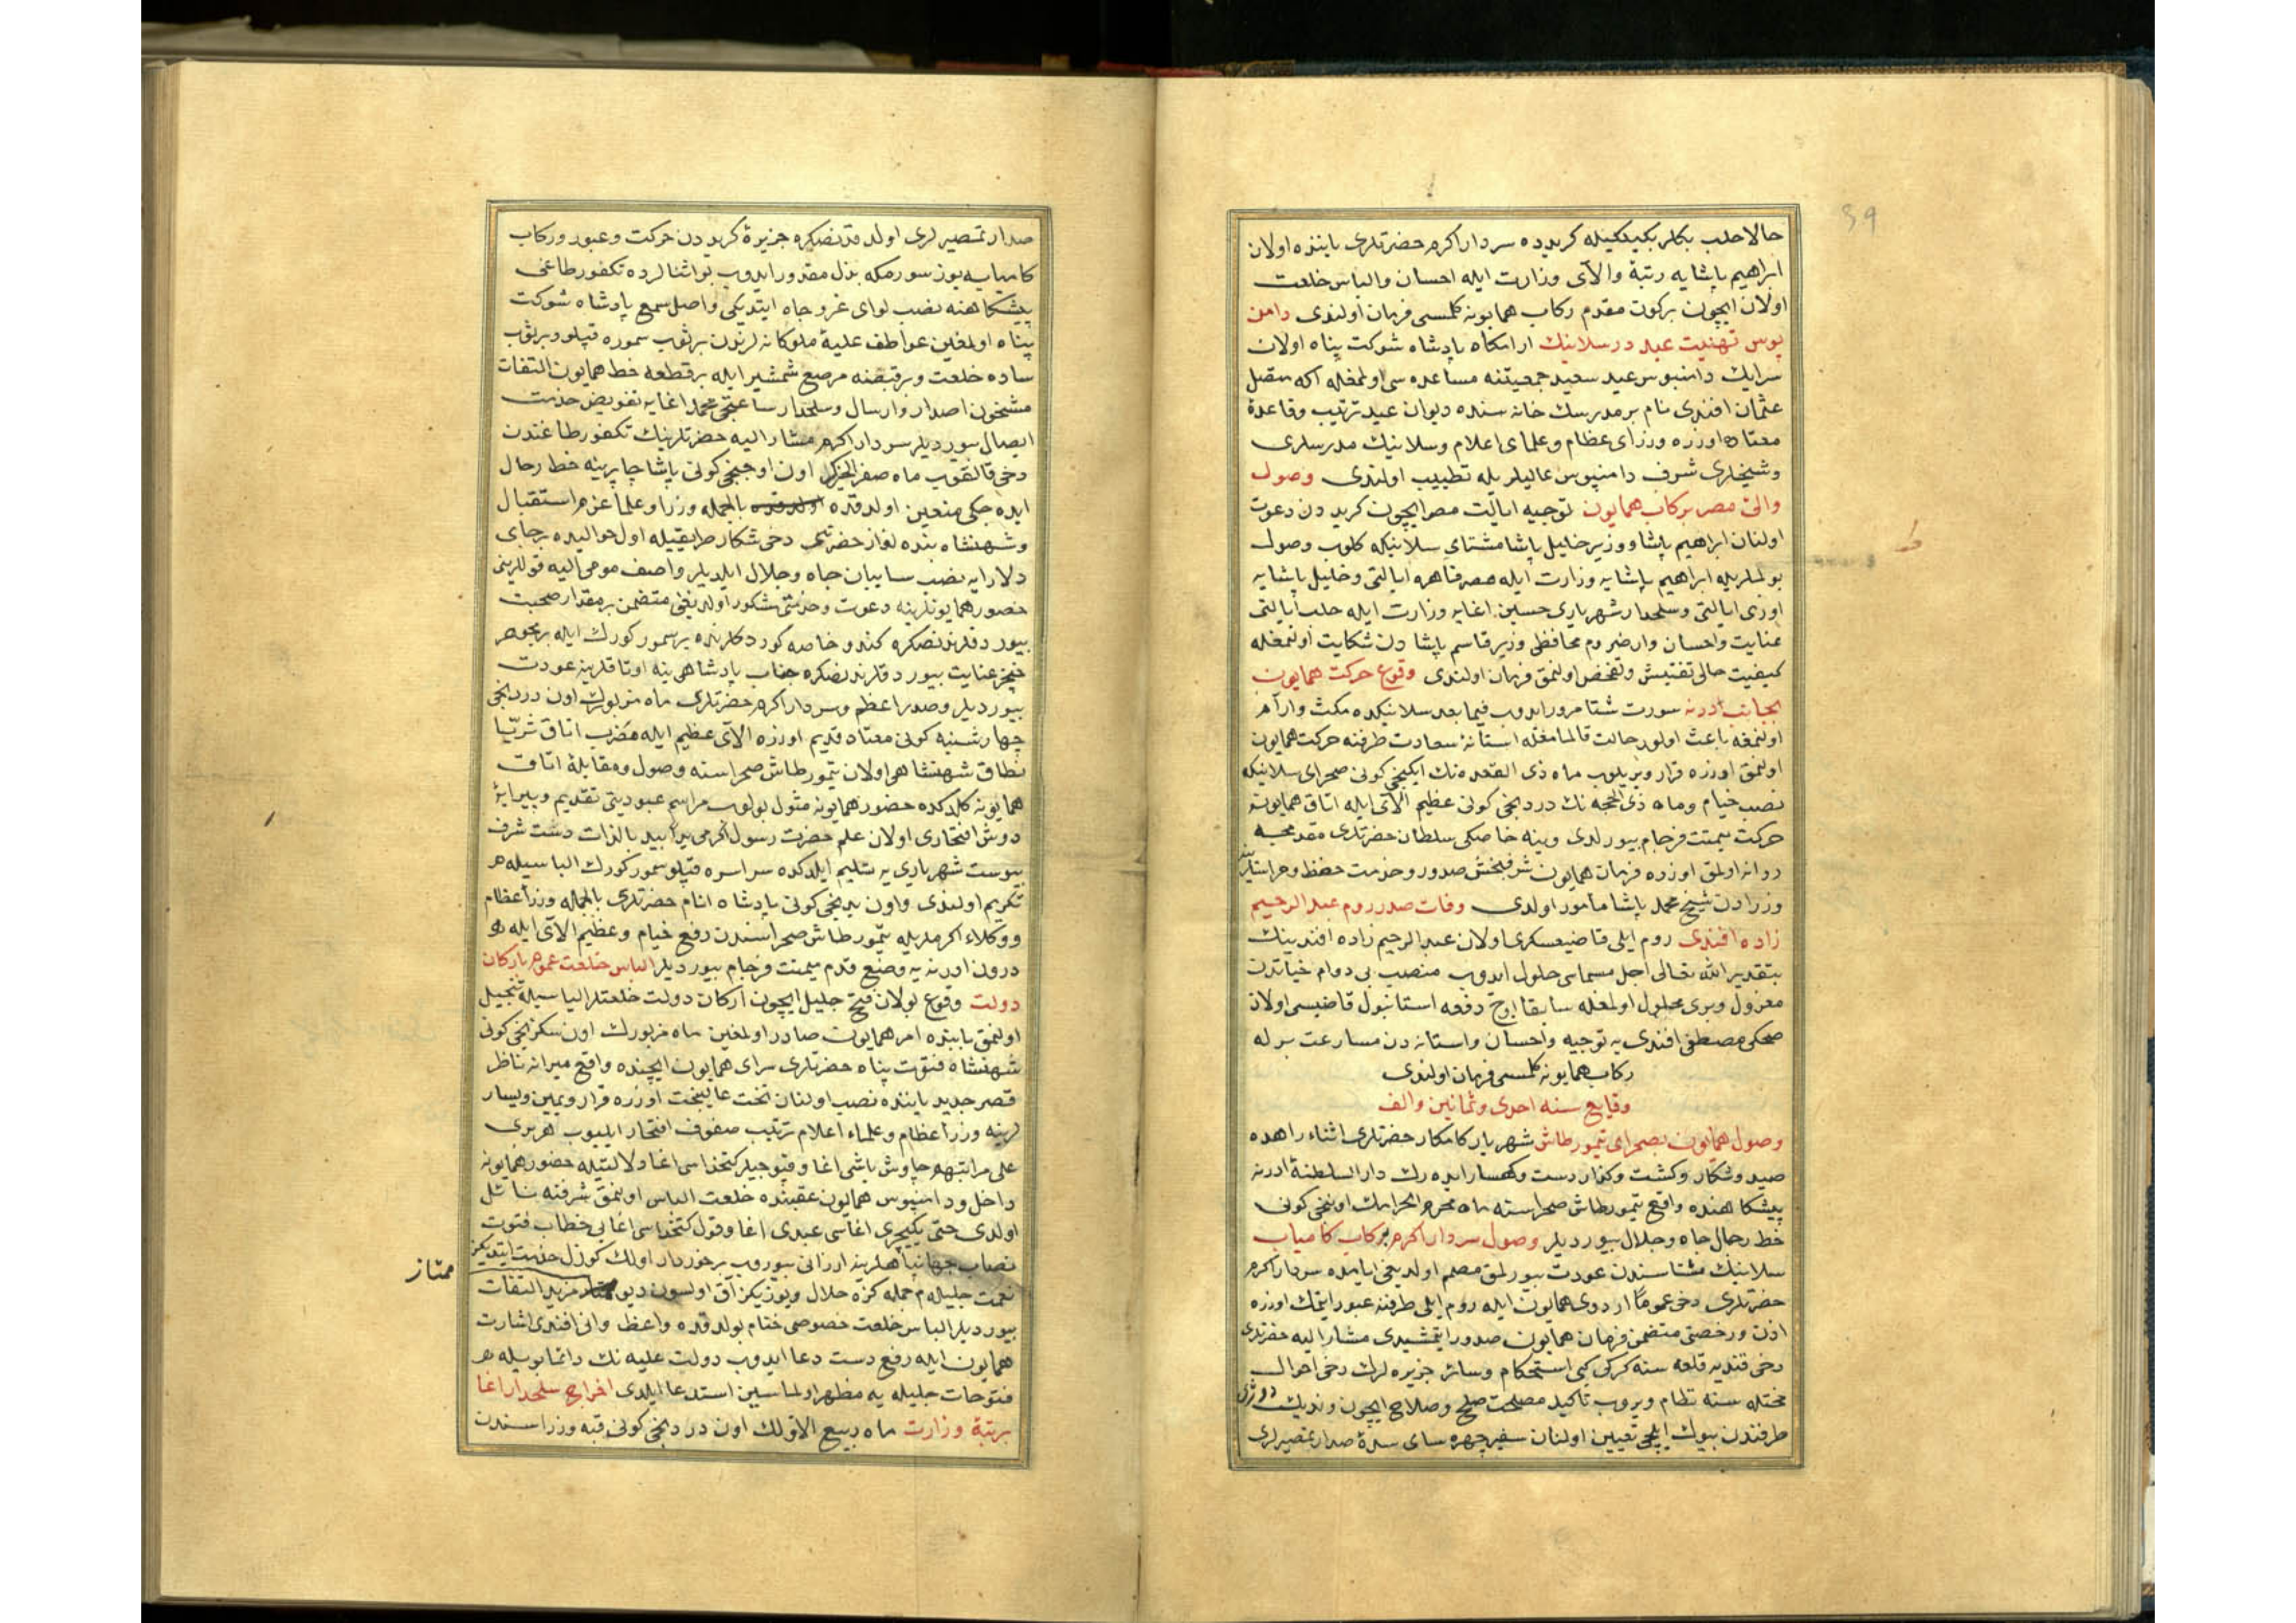 حالا حلب بكلربكيلكيله كريدده سردار اكرم حضرتلرى ياننده اولان
ابراهيم پاشايه رتبۀ والاى وزارت ايله احسان والباس خلعت
اولان ايچون بركون مقدم ركاب همايونه كلمسى فرمان اولندى دامن
بوس تهنيت عيد در سلانيك ارامكاه پادشاه شوكت پناه اولان
سرايك دامنبوس عيد سعيد جمعيتنه مساعده سى اولمغله اكه متصل
عثمان افندى نام بر مدرسك خانه سنده ديوان عيد ترتيب وقاعدۀ
معتاده اوزره وزراى عظام وعلماى اعلام وسلانيك مدرسلرى
وشيخلرى شرف دامنبوس عاليلريله تطييب اولندى وصول
والئ مصر بركاب همايون توجيه ايالت مصر ايچون كريددن دعوت
اولنان ابراهيم پاشا ووزير خليل پاشا مشتاى سلانيكه كلوب وصول
بولملريله ابراهيم پاشايه وزارت ايله مصر قاهره ايالتى وخليل پاشايه
اوزى ايالتى وسلحدار شهريارى حسين اغايه وزارت ايله حلب ايالتى
عنايت واحسان وارضروم محافظى وزير قاسم پاشادن شكايت اولنمغله
كيفيت حالى تفتيش وتفحص اولنمق فرمان اولندى وقوع حركت همايون
بجانب ادرنه سورت شتا مرور ايدوب فيما بعد سلانيكده مكث وارام
اولنمغه باعث اولور حالت قالمامغله استانۀ سعادت طرفنه حركت همايون
اولنمق اوزره قرار ويريلوب ماه ذى القعده نك ايكنجى كونى صحراى سلانيكه
نصب خيام وماه ذى الحجه نك دردنجى كونى عظيم الاى ايله اتاق همايونه
حركت ميمنت فرجام بيورلدى وينه خاصكى سلطان حضرتلرى مقدمجه
روانه اولمق اوزره فرمان همايون شرفبخش صدور وخدمت حفظ وحراستلرينه
وزرادن شيخ محمد پاشا مأمور اولدى وفات صدر روم عبد الرحيم
زاده افندى روم ايلى قاضيعسكرى اولان عبد الرحيم زاده افندينك
بتقدير الله تعالى اجل مسماسى حلول ايدوب منصب بى دوام حياتدن
معزول ويرى محلول اولمغله سابقا اوچ دفعه استانبول قاضيسى اولان
ضحكى مصطفى افندى يه توجيه واحسان واستانه دن مسارعت برله
ركاب همايونه كلمسى فرمان اولندى
وقايع سنه احدى وثمانين والف
وصول همايون بصحراى تيمورطاش شهريار كامكار حضرتلرى اثناء راهده
صيد وشكار وكشت وكذار دشت وكهسار ايده رك دار السلطنۀ ادرنه
پيشكاهنده واقع تيمورطاش صحراسنه ماه محرم الحرامك اوننجى كونى
حط رحال جاه وجلال بيورديلر وصول سردار اكرم بركاب كامياب
سلانيك مشتاسندن عودت بيورلمق مصمم اولديغى ايامده سردار اكرم
حضرتلرى دخى عموما اردوى همايون ايله روم ايلى طرفنه عبور ايتمك اوزره
اذن ورخصتى متضمن فرمان همايون صدور ايتمشيدى مشار اليه حضرتلرى
دخى قنديه قلعه سنه كركى كبى استحكام وسائر جزيره لرك دخى احوال
مختله سنه نظام ويروب تأكيد مصلحت صلح وصلاح ايچون ونديك دوژى
طرفندن بيوك ايلچى تعيين اولنان سفير چهره ساى سدۀ صدارتمصيرلرى
صدارتمصيرلرى اولدقدنصكره جزيرۀ كريددن حركت وعبور وركاب
كاميابه يوز سورمكه بذل مقدور ايدوب بو اثنالرده تكفورطاغى
پيشكاهنه نصب لواى عز وجاه ايتديكى واصل سمع پادشاه شوكت
پناه اولمغين عواطف عليۀ ملوكانه لرندن بر ثوب سموره قپلو وبر ثوب
ساده خلعت وبر قبضه مرصع شمشير ايله بر قطعه خط همايون التفات
مشحون اصدار وارسال وسلحدار ساعتجى محمد اغايه تفويض خدمت
ايصال بيورديلر سردار اكرم مشار اليه حضرتلرينك تكفورطاغندن
دخى قالقوب ماه صفر الخيرك اون اوچنجى كونى پاشا چايرينه حط رحال
ايده جكى متعين اولدقده بالجمله وزرا وعلما عزم استقبال
وشهنشاه بنده نواز حضرتلرى دخى شكار طريقيله اول حواليده بر جاى
دلارايه نصب سايبان جاه وجلال ايلديلر واصف مومى اليه قوللرينى
حضور همايونلرينه دعوت وخدمتى مشكور اولديغنى متضمن بر مقدار صحبت
بيوردقلرندنصكره كندو خاصه كوردكلرنده بر سمور كورك ايله بر مجوهر
خنجر عنايت بيوردقلرندنصكره جناب پادشاهى ينه اوتاقلرينه عودت
بيورديلر وصدر اعظم وسردار اكرم حضرتلرى ماه مزبورك اون دردنجى
چهارشنبه كونى معتاد قديم اوزره الاى عظيم ايله مضرب اتاق ثريا
نطاق شهنشاهى اولان تيمورطاش صحراسنه وصول ومقابلۀ اتاق
همايونه كلدكده حضور همايونه مثول بولوب مراسم عبوديتى تقديم وپيرايۀ
دوش افتخارى اولان علم حضرت رسول اكرمى يد بيد بالذات دست شرف
پيوست شهريارى يه تسليم ايلدكده سراسره قپلو سمور كورك الباسيله
تكريم اولندى واون يدنجى كونى پادشاه انام حضرتلرى بالجمله وزراء عظام
ووكلاء اكرملريله تيمورطاش صحراسندن رفع خيام وعظيم الاى ايله
درون ادرنه يه وضع قدم ميمنت فرجام بيورديلر الباس خلعت عموم باركان
دولت وقوع بولان فتح جليل ايچون اركان دولت خلعتلر الباسيله تبجيل
اولنمق بابنده امر همايون صادر اولمغين ماه مزبورك اون سكزنجى كونى
شهنشاه فتوت پناه حضرتلرى سراى همايون ايچنده واقع ميرانه ناظر
قصر جديد ياننده نصب اولنان تخت عاليبخت اوزره قرار ويمين ويسار
لرينه وزراء عظام وعلماء اعلام ترتيب صفوف افتخار ايليوب هر برى
على مراتبهم چاوش باشى اغا وقپوجيلر كتخداسى اغا دلالتيله حضور همايونه
داخل ودامنبوس همايون عقبنده خلعت الباس اولنمق شرفنه نائل
اولدى حتى يكيچرى اغاسى عبدى اغا وقول كتخداسى اغايى خطاب فتوت
نصاب جهانپناهلرينه ارزانى بيوروب برخوردار اولك كوزل خدمت ايتديكز
نعمت جليله م جمله كزه حلال ويوزيكز آق اولسون ديو مزيد التفات
ممتاز
بيورديلر الباس خلعت خصوصى ختام بولدقده واعظ وانى افندى اشارت
همايون ايله رفع دست دعا ايدوب دولت عليه نك دائما بويله
فتوحات جليله يه مظهر اولماسين استدعا ايلدى اخراج سلحدار اغا
برتبۀ وزارت ماه ربيع الاولك اون دردنجى كونى قبه وزراسندن